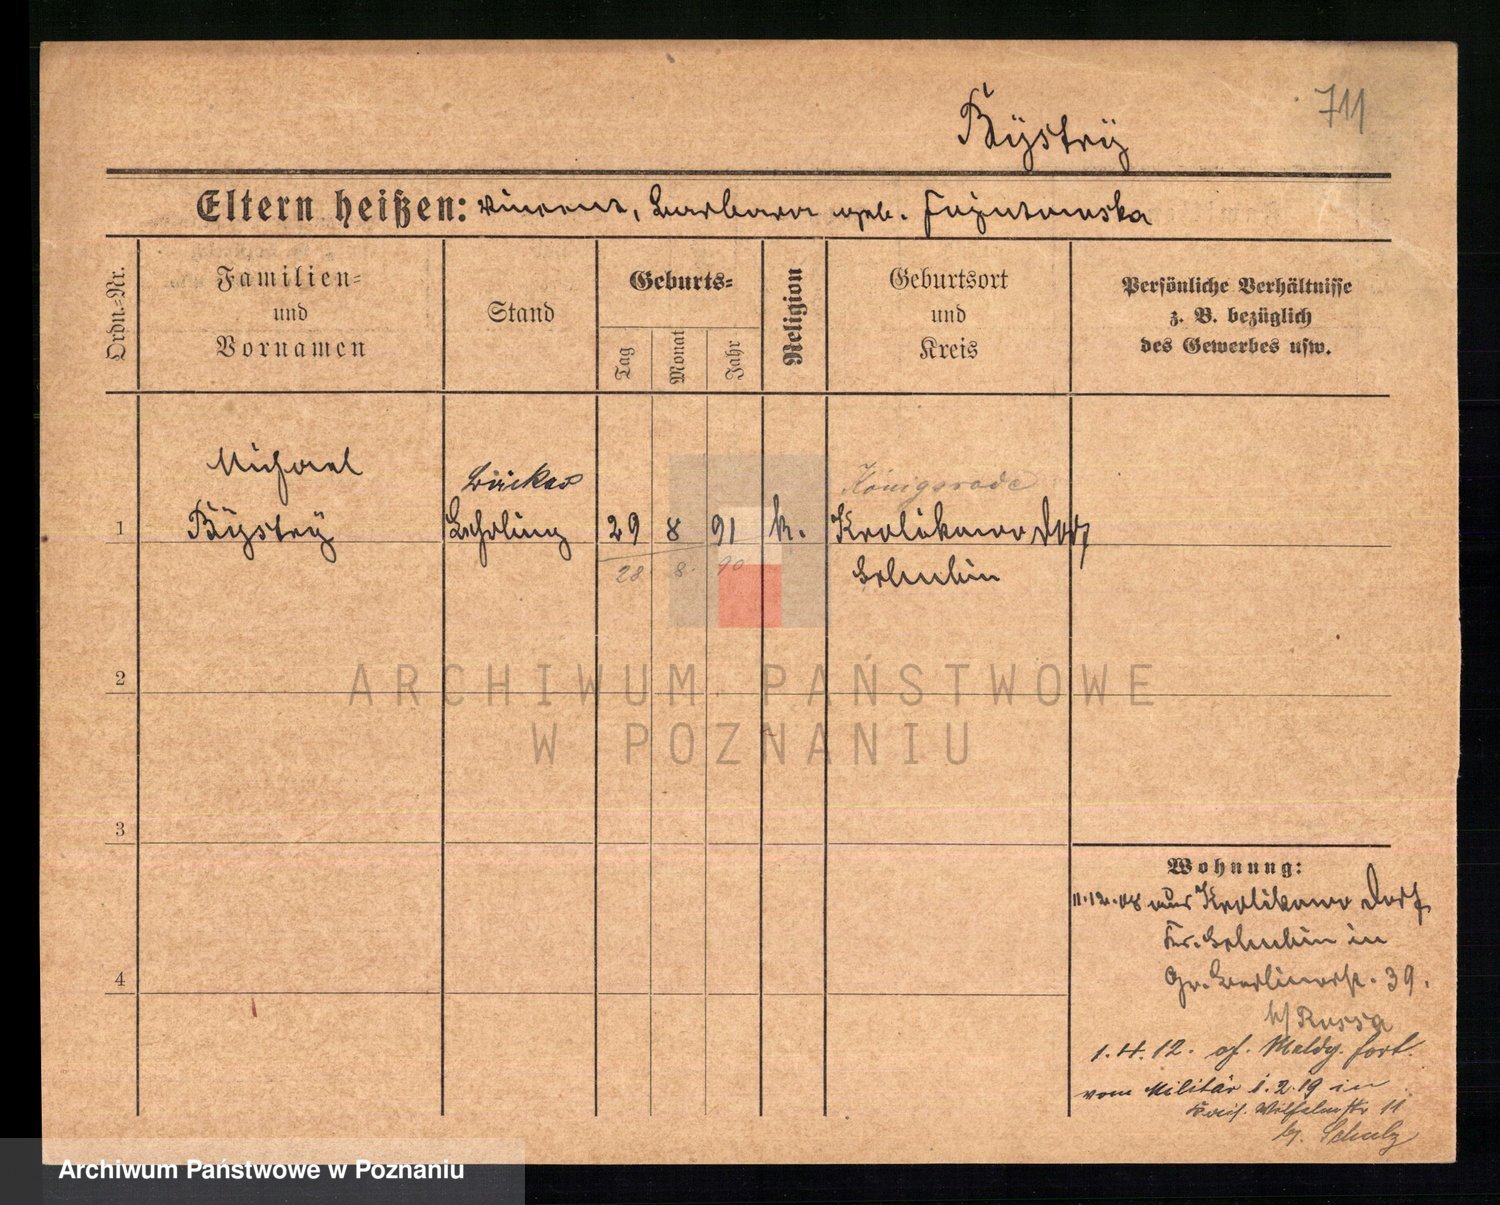 711
Bÿstrÿ
Eltern heißen: Vincent, Barbara geb.
Ordn.-Nr.
Familien- und Vornamen
Stand
Geburts-
Tag
Monat
Jahr
Religion
Geburtsort und Kreis
Persönliche Verhältnisse
z. B. bezüglich
des Gewerbes usw.
Michael
Bäcker
Königsrode
1 Bÿstrÿ Lehrling 29 8 91 k. Krolikowo Dorf
28. 8. 90
Schubin
2
ARCHIWUM PAŃSTWOWE
W POZNANIU
3
Wohnung:
11.12.08 aus Krolikowo Dorf
Kr. Schubin in
Gr. Berlinerstr. 39.
b/ Russa
4
1.4.12. of. Meldg. fort.
vom Militär 1.2.19 in
Kais. Wilhelmstr 11
b/. Schulz
Archiwum Państwowe w Poznaniu